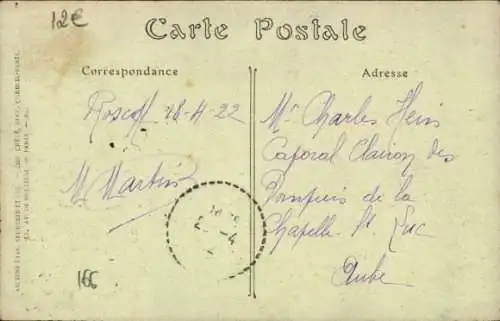 12€
Carte Postale
Correspondance
Adresse
Roscoff 18-4-22
M. Martin
Mr Charles Hein
Caporal Clairon des
Pompiers de la
Chapelle St Luc
Aube
166